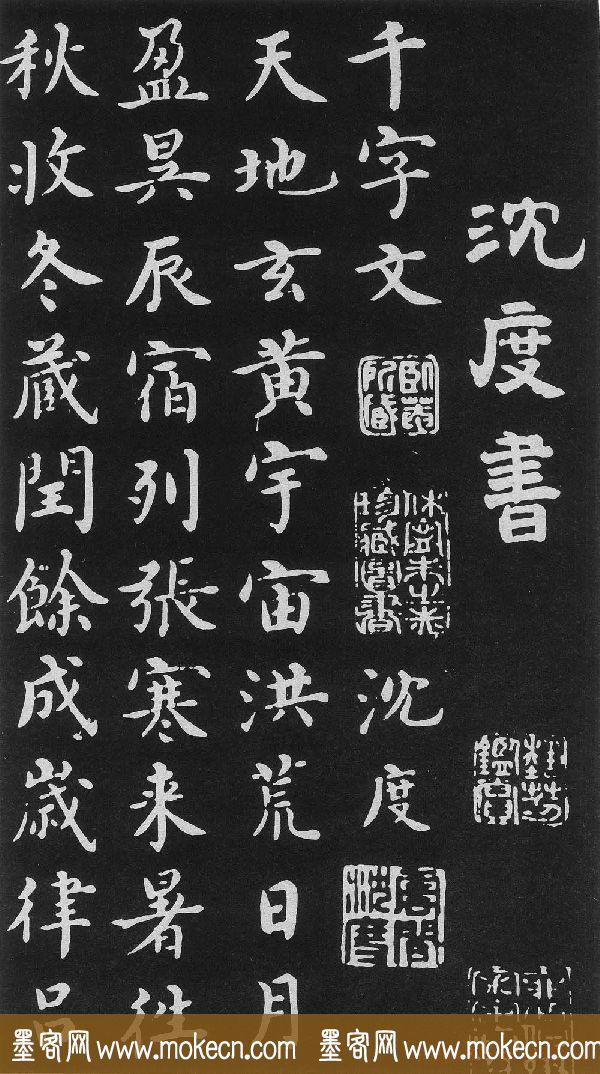 沈度書
千字文
沈度
天地玄黄宇宙洪荒日月
盈昃辰宿列張寒来暑往
秋收冬蔵閏餘成歲律吕
墨客网 www.mokecn.com 墨客网 www.mokecn.com